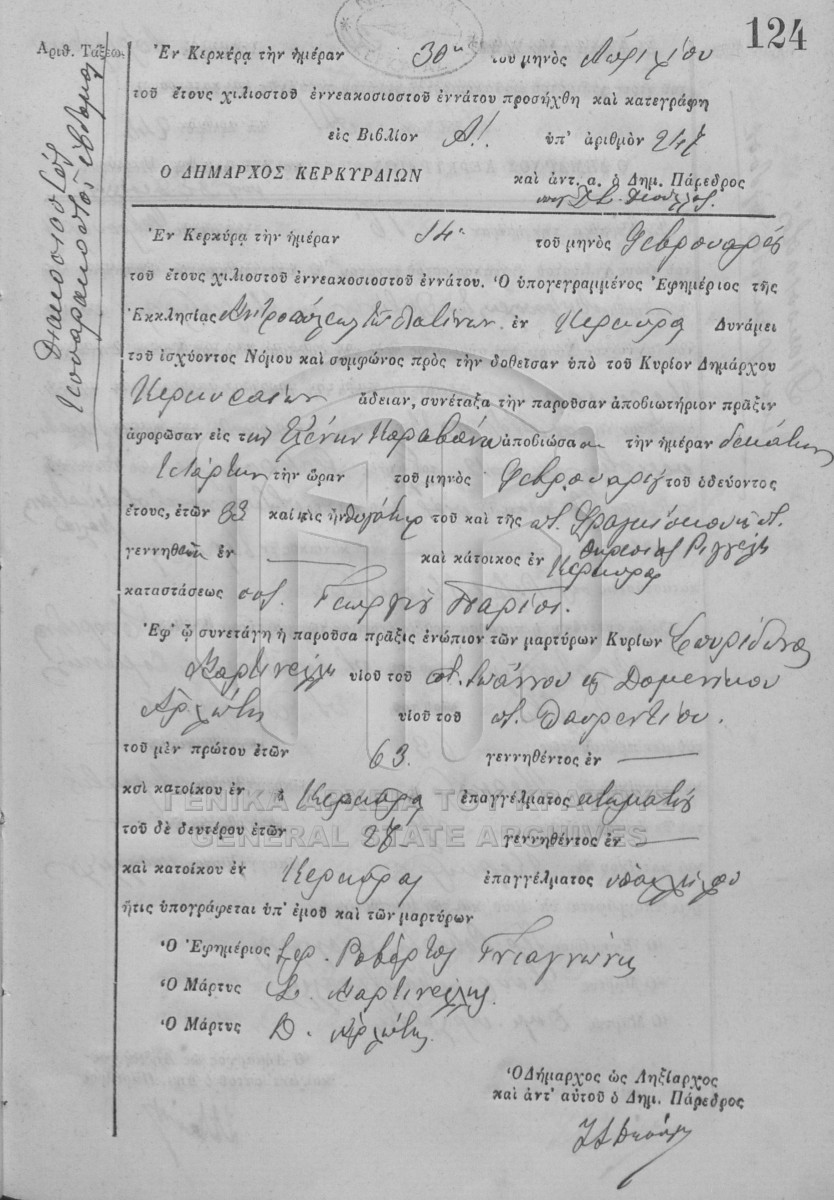 124
Ἀριθ. Τάξεως
Διακοσιοστὸς
Τεσσαρακοστὸς ἕβδομος
Ἐν Κερκύρᾳ τὴν ἡμέραν 30ην τοῦ μηνὸς Ἀπριλίου
τοῦ ἔτους χιλιοστοῦ ἐννεακοσιοστοῦ ἐννάτου προσήχθη καὶ κατεγράφη
εἰς Βιβλίον Α! ὑπ' ἀριθμὸν 247
Ο ΔΗΜΑΡΧΟΣ ΚΕΡΚΥΡΑΙΩΝ καὶ ἀντ. α. ὁ Δημ. Πάρεδρος
Ἐν Κερκύρᾳ τὴν ἡμέραν 14ην τοῦ μηνὸς Φεβρουαρίου
τοῦ ἔτους χιλιοστοῦ ἐννεακοσιοστοῦ ἐννάτου. Ὁ ὑπογεγραμμένος Ἐφημέριος τῆς
Ἐκκλησίας Μητροπόλεως τῶν Λατίνων ἐν Κερκύρᾳ Δυνάμει
τοῦ ἰσχύοντος Νόμου καὶ συμφώνος πρὸς τὴν δοθεῖσαν ὑπὸ τοῦ Κυρίου Δημάρχου
Κερκυραίων ἄδειαν, συνέταξα τὴν παροῦσαν ἀποβιωτήριον πρᾶξιν
ἀφορῶσαν εἰς τὴν Ἑλένην Καραβία ἀποβιώσασαν τὴν ἡμέραν δεκάτην
τετάρτην τὴν ὥραν τοῦ μηνὸς Φεβρουαρίου τοῦ ὁδεύοντος
ἔτους, ἐτῶν 83 καὶ τις ἦν θυγάτηρ τοῦ καὶ τῆς ποτ. Φραγκίσκου καὶ ποτ.
γεννηθεῖσα ἐν — καὶ κάτοικος ἐν Κερκύρᾳ
καταστάσεως συζ. Γεωργίου
Ἐφ' ᾧ συνετάγη ἡ παροῦσα πρᾶξις ἐνώπιον τῶν μαρτύρων Κυρίων Σπυρίδωνα
Μαρτινέλλη υἱοῦ τοῦ ποτ. Ἰωάννου καὶ Δομενίκου
Ἀρλώτη υἱοῦ τοῦ ποτ. Λαυρεντίου.
τοῦ μὲν πρώτου ἐτῶν 63. γεννηθέντος ἐν —
καὶ κατοίκου ἐν Κερκύρᾳ ἐπαγγέλματος κτηματίου
τοῦ δὲ δευτέρου ἐτῶν 27 γεννηθέντος ἐν —
καὶ κατοίκου ἐν Κερκύρᾳ ἐπαγγέλματος ὑπαλλήλου
ἥτις ὑπογράφεται ὑπ' ἐμοῦ καὶ τῶν μαρτύρων
Ὁ Ἐφημέριος Ἱερ. Ροβέρτος
Ὁ Μάρτυς Σ. Μαρτινέλλης
Ὁ Μάρτυς Δ. Ἀρλώτης
Ὁ Δήμαρχος ὡς Ληξίαρχος
καὶ ἀντ' αὐτοῦ ὁ Δημ. Πάρεδρος
ΓΕΝΙΚΑ ΑΡΧΕΙΑ ΤΟΥ ΚΡΑΤΟΥΣ
GENERAL STATE ARCHIVES